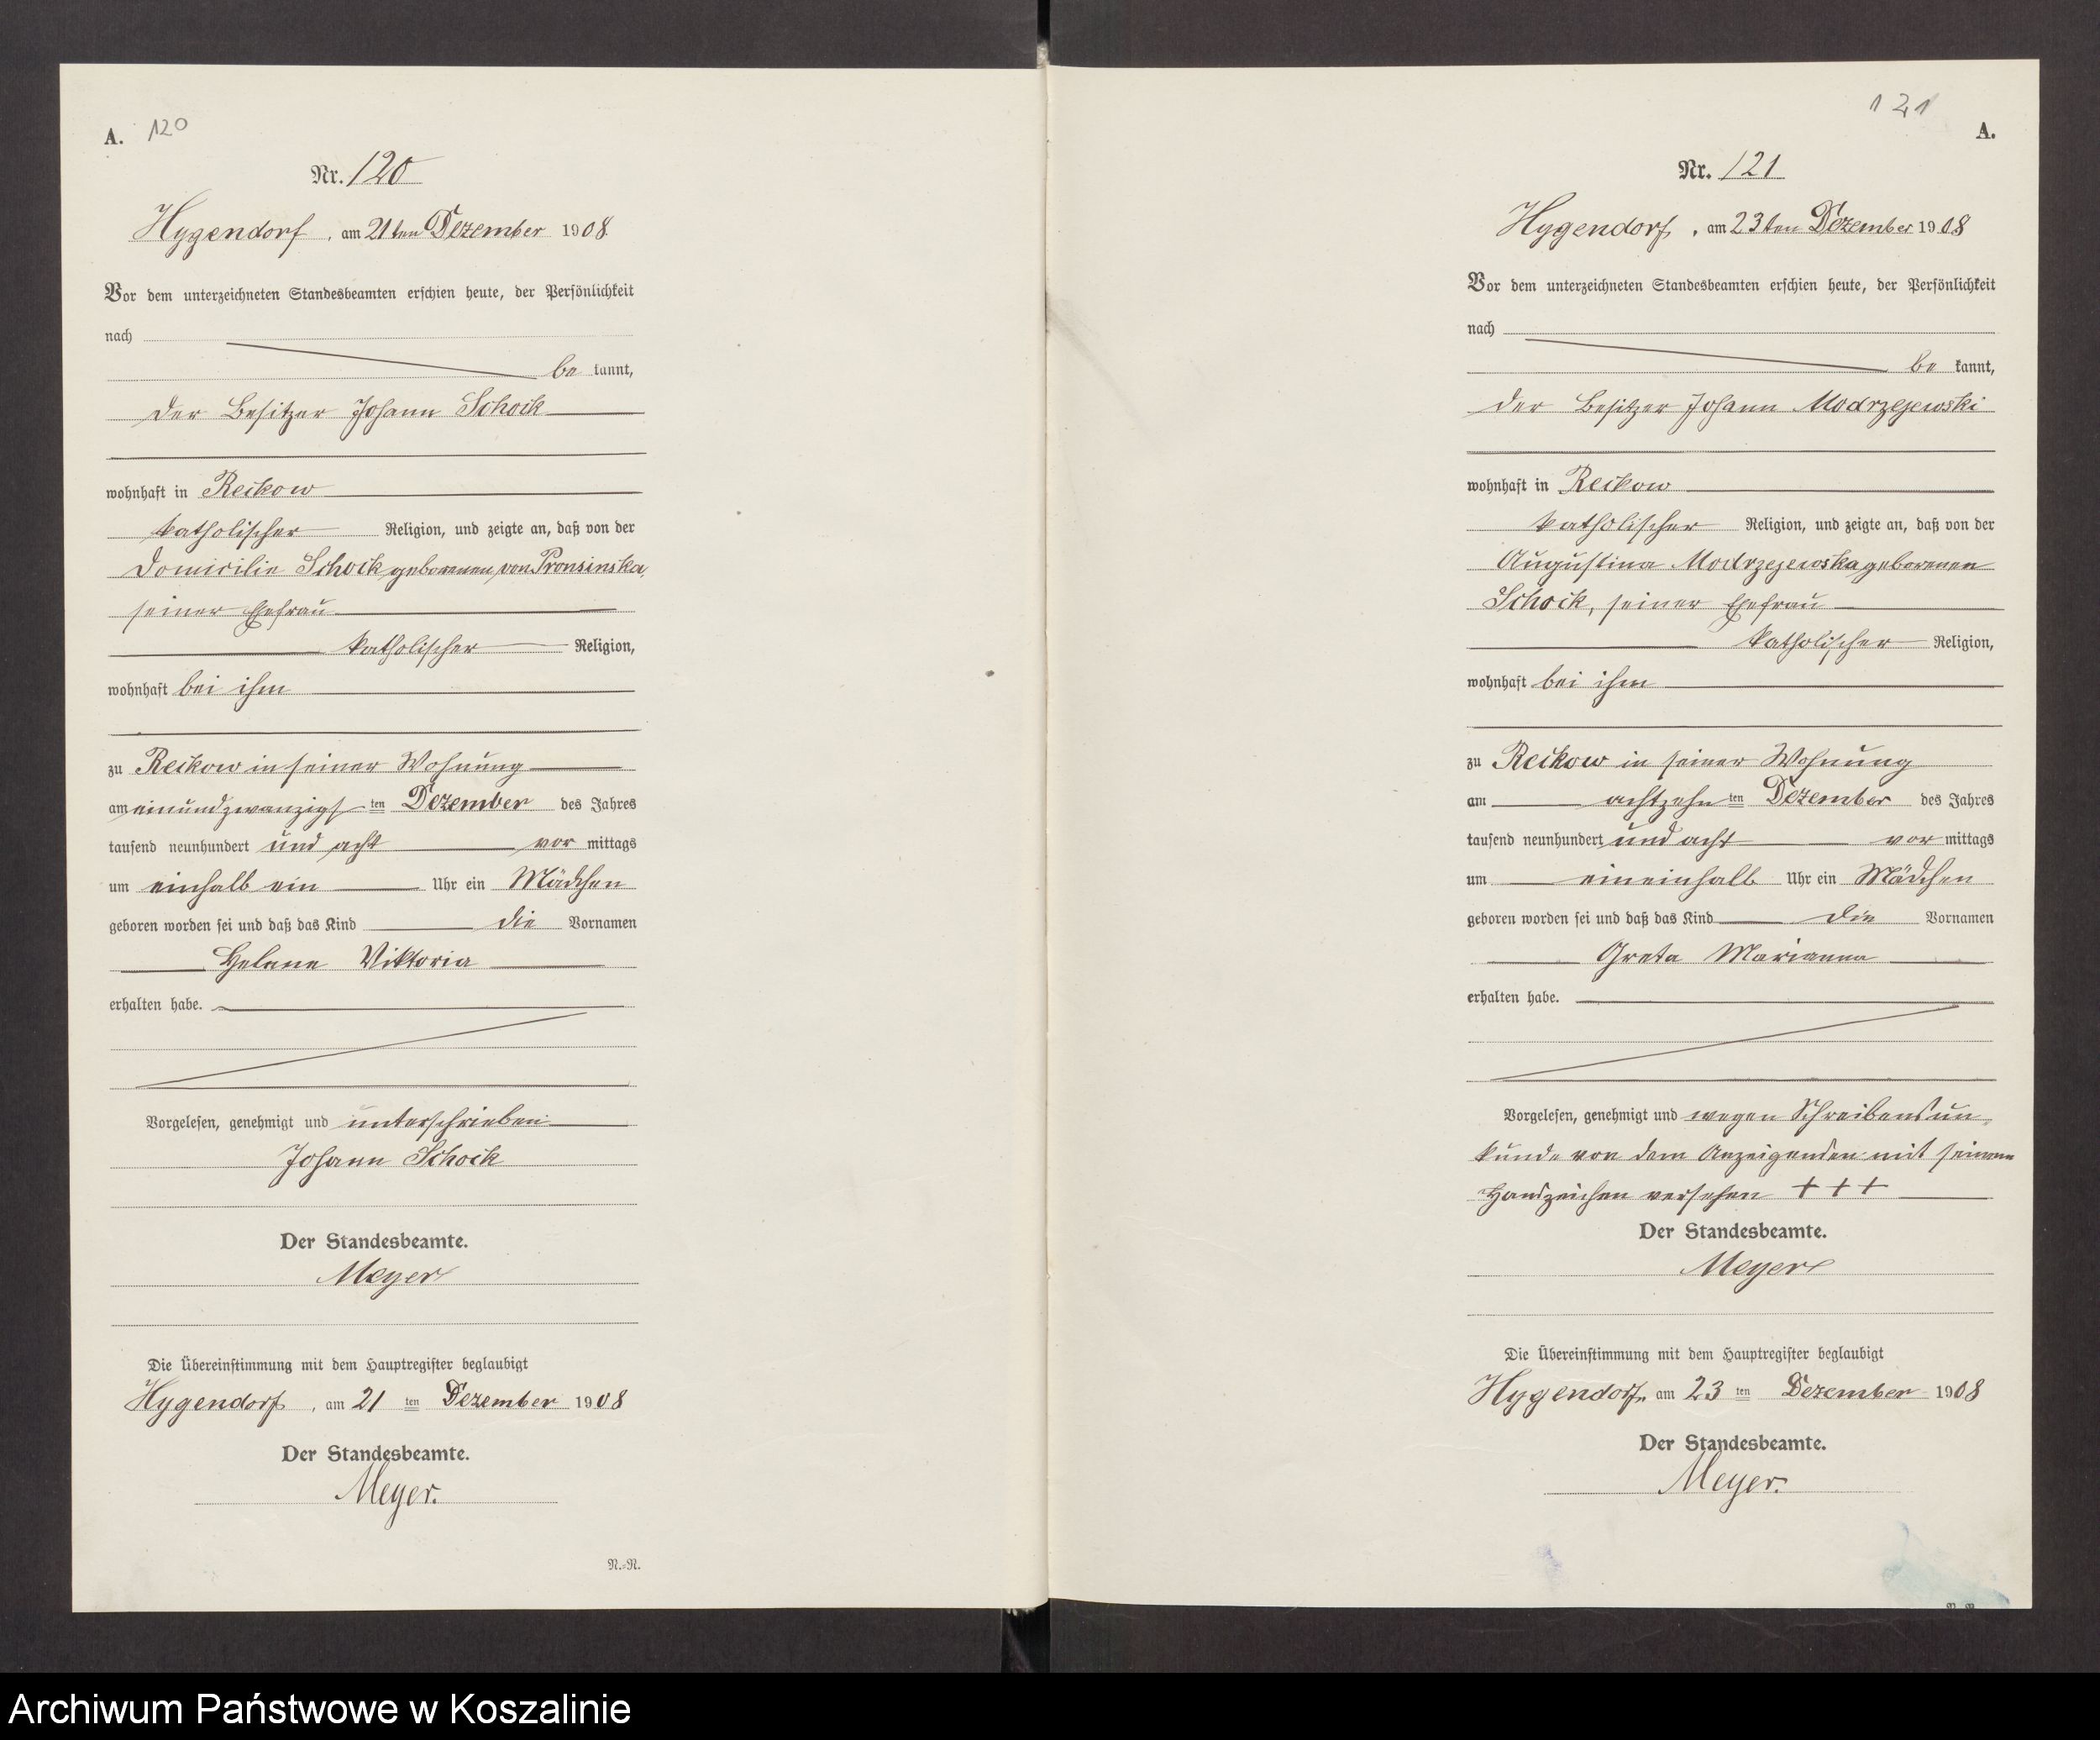 A. 120
Nr. 120
Hygendorf, am 21ten Dezember 1908.
Vor dem unterzeichneten Standesbeamten erschien heute, der Persönlichkeit
nach
be kannt,
der Besitzer Johann Schock
wohnhaft in Reckow
katholischer Religion, und zeigte an, daß von der
Domicilie Schock geborenen von Pronsinska,
seiner Ehefrau
katholischer Religion,
wohnhaft bei ihm
zu Reckow in seiner Wohnung
am einundzwanzigsten Dezember des Jahres
tausend neunhundert und acht vor mittags
um einhalb ein Uhr ein Mädchen
geboren worden sei und daß das Kind die Vornamen
Helene Viktoria
erhalten habe.
Vorgelesen, genehmigt und unterschrieben
Johann Schock
Der Standesbeamte.
Meyer
Die Übereinstimmung mit dem Hauptregister beglaubigt
Hygendorf, am 21 ten Dezember 1908
Der Standesbeamte.
Meyer.
N.=N.
121
A.
Nr. 121
Hygendorf, am 23ten Dezember 1908
Vor dem unterzeichneten Standesbeamten erschien heute, der Persönlichkeit
nach
be kannt,
der Besitzer Johann Modrzejewski
wohnhaft in Reckow
katholischer Religion, und zeigte an, daß von der
Augustina Modrzejewska geborenen
Schock, seiner Ehefrau
katholischer Religion,
wohnhaft bei ihm
zu Reckow in seiner Wohnung
am achtzehnten Dezember des Jahres
tausend neunhundert und acht vor mittags
um eineinhalb Uhr ein Mädchen
geboren worden sei und daß das Kind die Vornamen
Greta Marianna
erhalten habe.
Vorgelesen, genehmigt und wegen Schreibensun-
kunde von dem Anzeigenden mit seinem
Handzeichen versehen + + +
Der Standesbeamte.
Meyer
Die Übereinstimmung mit dem Hauptregister beglaubigt
Hygendorf, am 23 ten Dezember 1908
Der Standesbeamte.
Meyer.
Archiwum Państwowe w Koszalinie